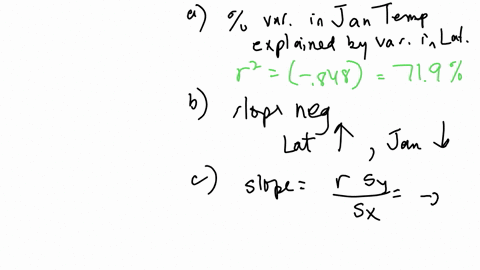 a) % var. in Jan Temp
explained by var. in Lat.
r² = (-.848) = 71.9%
b) slope neg
Lat ↑, Jan ↓
c) slope = r sy / sx = →